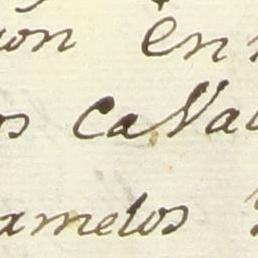 ion en
os caVal
amelos